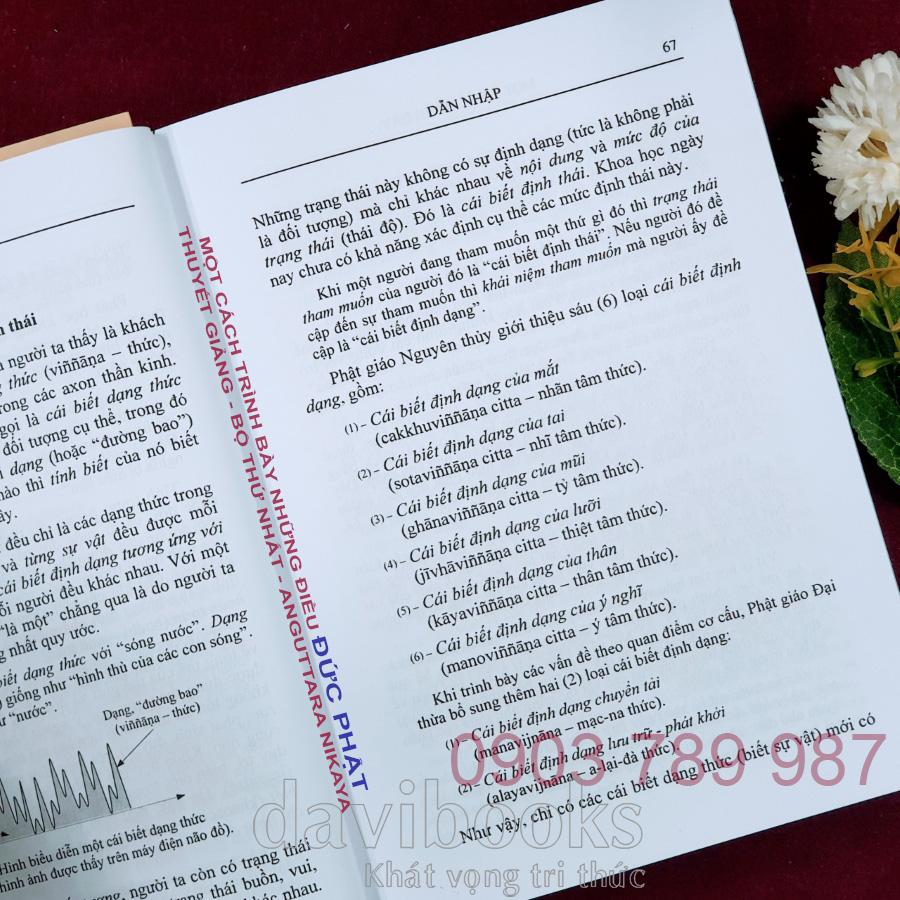 n thái
người ta thấy là khách
thức (viññāṇa – thức),
rong các axon thần kinh.
gọi là cái biết dạng thức
đối tượng cụ thể, trong đó
dạng (hoặc “đường bao”)
nào thì tính biết của nó biết
ây.
đều chỉ là các dạng thức trong
và từng sự vật đều được mỗi
cái biết định dạng tương ứng với
ỗi người đều khác nhau. Với một
“là một” chẳng qua là do người ta
g nhất quy ước.
biết dạng thức với “sóng nước”. Dạng
giống như “hình thù của các con sóng”.
ư “nước”.
Dạng, “đường bao”
(viññāṇa – thức)
Hình biểu diễn một cái biết dạng thức
hình ảnh được thấy trên máy điện não đồ).
tượng, người ta còn có trạng thái
trạng thái buồn, vui,
khác nhau.
MỘT CÁCH TRÌNH BÀY NHỮNG ĐIỀU ĐỨC PHẬT
THUYẾT GIẢNG - BỘ THỨ NHẤT - ANGUTTARA NIKAYA
67
DẪN NHẬP
Những trạng thái này không có sự định dạng (tức là không phải
là đối tượng) mà chỉ khác nhau về nội dung và mức độ của
trạng thái (thái độ). Đó là cái biết định thái. Khoa học ngày
nay chưa có khả năng xác định cụ thể các mức định thái này.
Khi một người đang tham muốn một thứ gì đó thì trạng thái
tham muốn của người đó là “cái biết định thái”. Nếu người đó đề
cập đến sự tham muốn thì khái niệm tham muốn mà người ấy đề
cập là “cái biết định dạng”.
Phật giáo Nguyên thủy giới thiệu sáu (6) loại cái biết định
dạng, gồm:
(1) – Cái biết định dạng của mắt
(cakkhuviññāṇa citta – nhãn tâm thức).
(2) – Cái biết định dạng của tai
(sotaviññāṇa citta – nhĩ tâm thức).
(3) – Cái biết định dạng của mũi
(ghānaviññāṇa citta – tỷ tâm thức).
(4) – Cái biết định dạng của lưỡi
(jīvhāviññāṇa citta – thiệt tâm thức).
(5) – Cái biết định dạng của thân
(kāyaviññāṇa citta – thân tâm thức).
(6) – Cái biết định dạng của ý nghĩ
(manoviññāṇa citta – ý tâm thức).
Khi trình bày các vấn đề theo quan điểm cơ cấu, Phật giáo Đại
thừa bổ sung thêm hai (2) loại cái biết định dạng:
(1) – Cái biết định dạng chuyển tải
(manavijnāna – mạc-na thức).
(2) – Cái biết định dạng lưu trữ - phát khởi
(alayavijnāna – a-lại-đà thức).
Như vậy, chỉ có các cái biết dạng thức (biết sự vật) mới có
0903 789 987
davibooks
Khát vọng tri thức